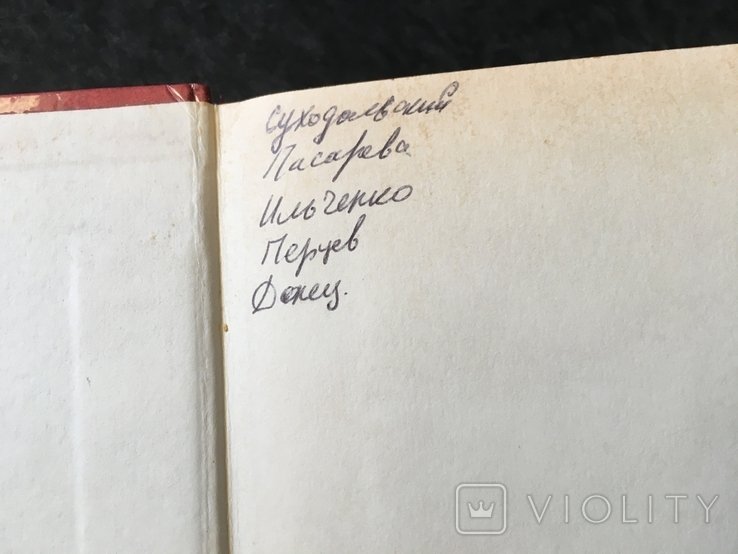 Суходольский
Писарева
Ильченко
Перцев
Донец.
VIOLITY